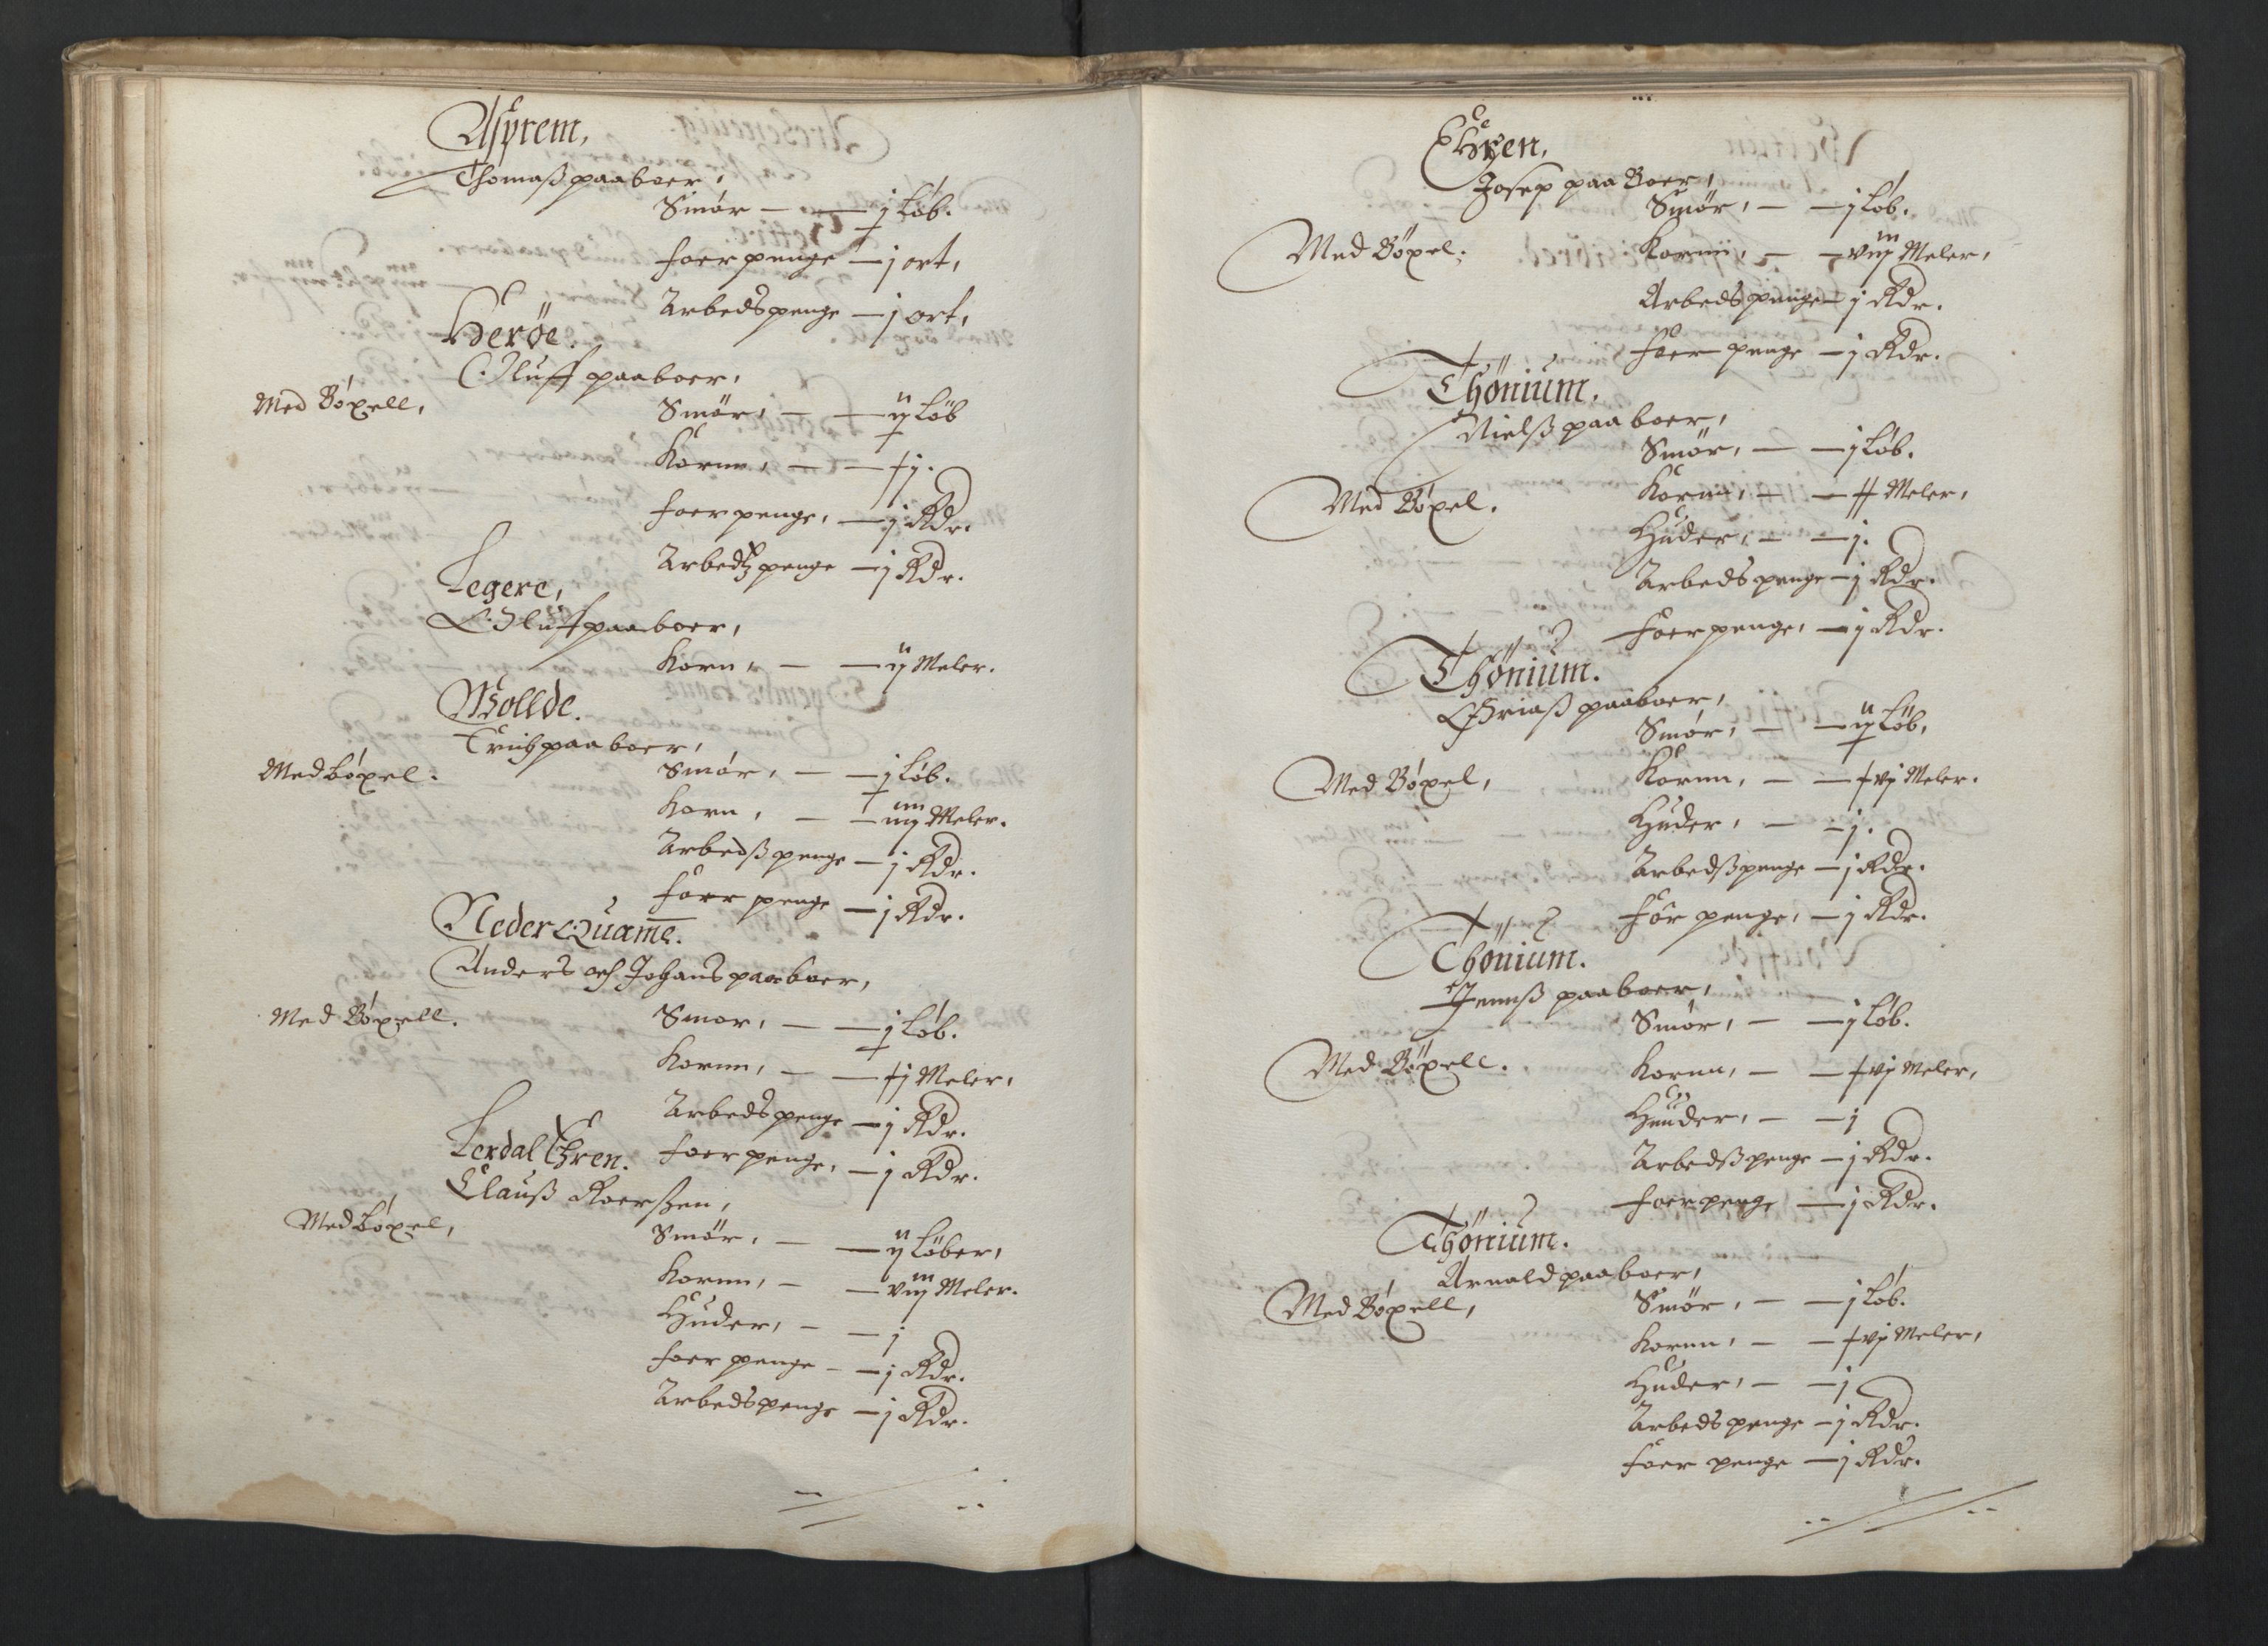 Asprem,
Thomaß paaboer,
Smør — — j Løb.
foerpenge — j ort,
Arbedspenge — j ort,
Herøe.
Oluff paaboer,
Med Böxell,
Smør, — — ij Løb
Kornn, — — j.
foerpenge, — j Rdr.
Arbedtzpenge — j Rdr.
Legere,
Oluf paaboer,
Korn, — — ij Meler.
Wollde.
paaboer,
Med böxel.
Smør, — — j Løb.
Korn, — — iiij Meler.
Arbedßpenge — j Rdr.
foer penge — j Rdr.
Neder Quame.
Anders och Johans paaboer,
Med Böxell.
Smør, — — j Løb.
Kornn, — — j Meler,
Arbedspenge — j Rdr.
Lerdal Ehren.
foerpenge, — j Rdr.
Clauß
Med böxel,
Smør, — — ij Løber,
Kornn, — — viij Meler.
Huder, — — j
foer penge — j Rdr.
Arbedspenge — j Rdr.
Ehren.
Josep paa Boer,
Smør, — — j Løb.
Med Böxel.
Kornn, — — viij Meler,
Arbedspenge — j Rdr.
foer penge — j Rdr.
Thönium.
Nielß paaboer,
Smør, — — j Løb.
Med Böxel.
Kornn, — — Meler,
Huder, — — j.
Arbeds penge — j Rdr.
foerpenge, — j Rdr.
Thönium.
paaboer,
Smør, — — ij Løb,
Med Böxel,
Kornn, — — vj Meler.
Huder, — — j.
Arbedßpenge — j Rdr.
För penge, — j Rdr.
Thönium.
Jennß paaboer,
Smør, — — j Løb.
Med Böxell.
Kornn, — — vj Meler,
Huder, — — j
Arbedßpenge — j Rdr.
foerpenge — j Rdr.
Thönium.
Arnold paaboer,
Med Böxell,
Smør, — — j Løb.
Kornn, — — vj Meler,
Huder, — — j
Arbeds penge — j Rdr.
foer penge — j Rdr.